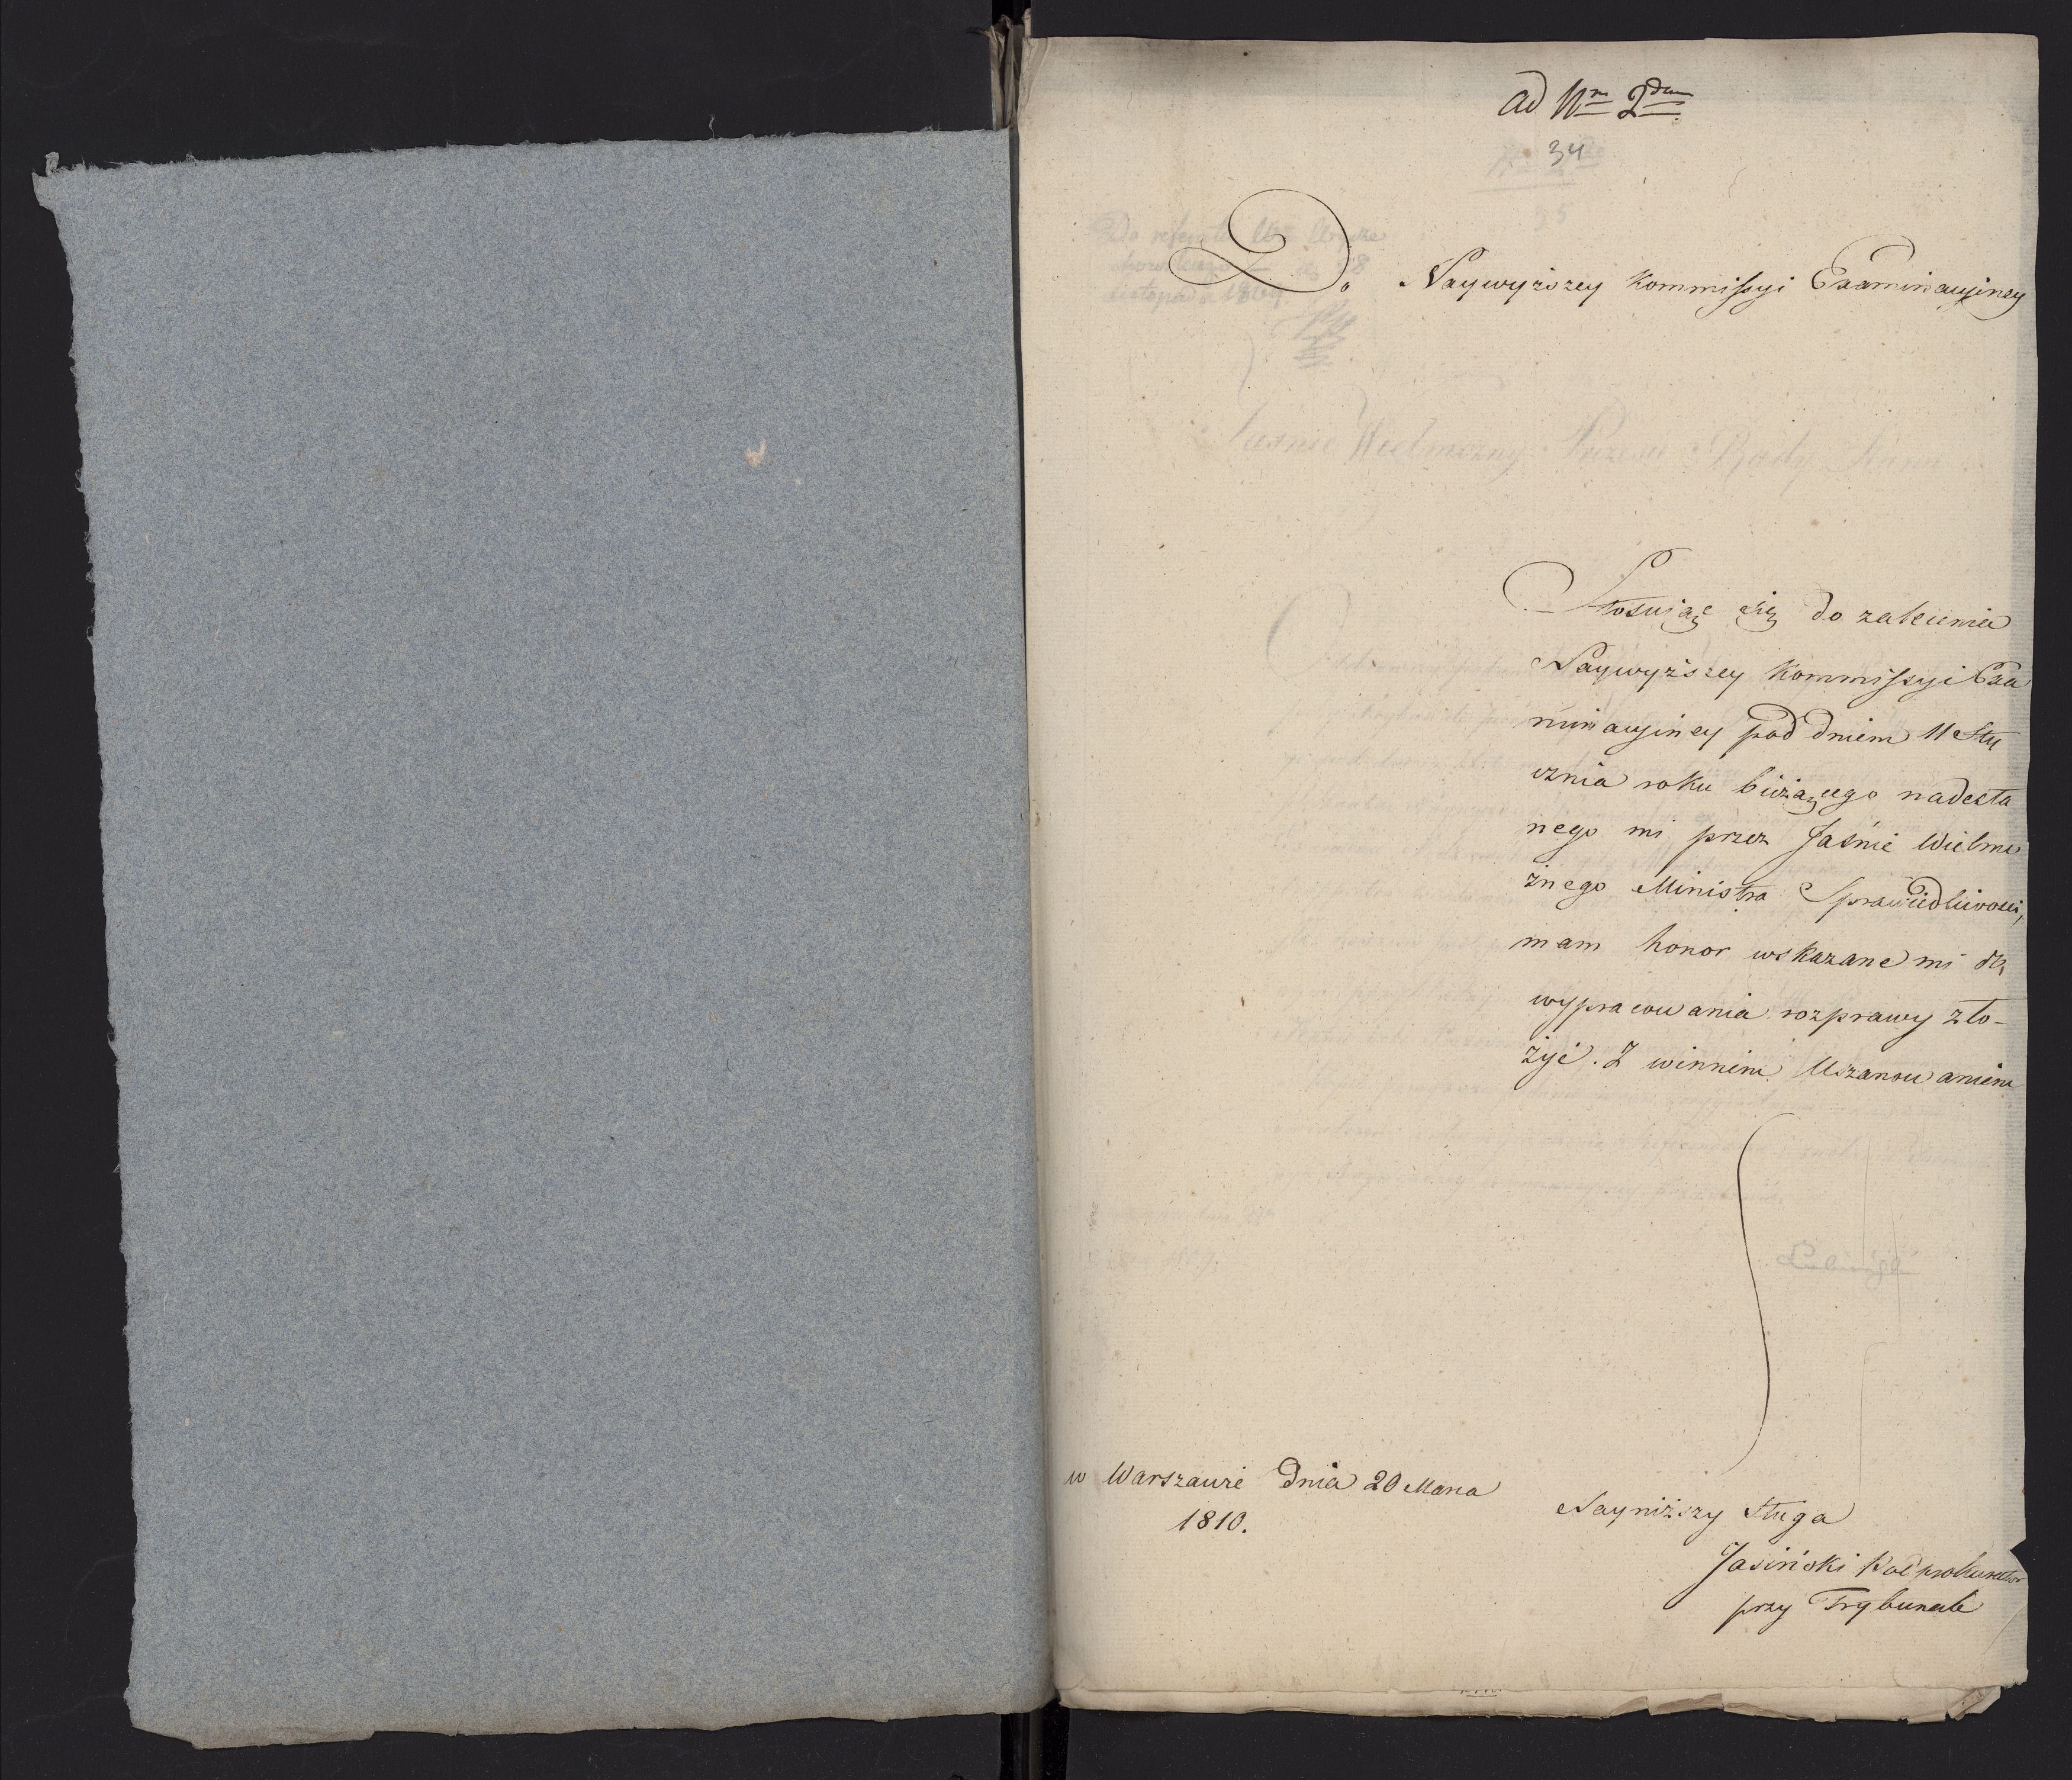 ad Nm 2dum
34
Do Naywyższey Kommissyi Examinacyiney
Stosuiąc się do zalecenia
Naywyższey Kommissyi Exa
minacyiney pod dniem 11 Sty
cznia roku bieżącego nadesła
nego mi przez Jaśnie Wielmo
żnego Ministra Sprawiedliwości,
mam honor wskazane mi do
wypracowania rozprawy zło-
żyć. Z winnem Uszanowaniem
w Warszawie dnia 20 Marca
1810.
Nayniższy Sługa
Jasiński Podprokurator
przy Trybunale